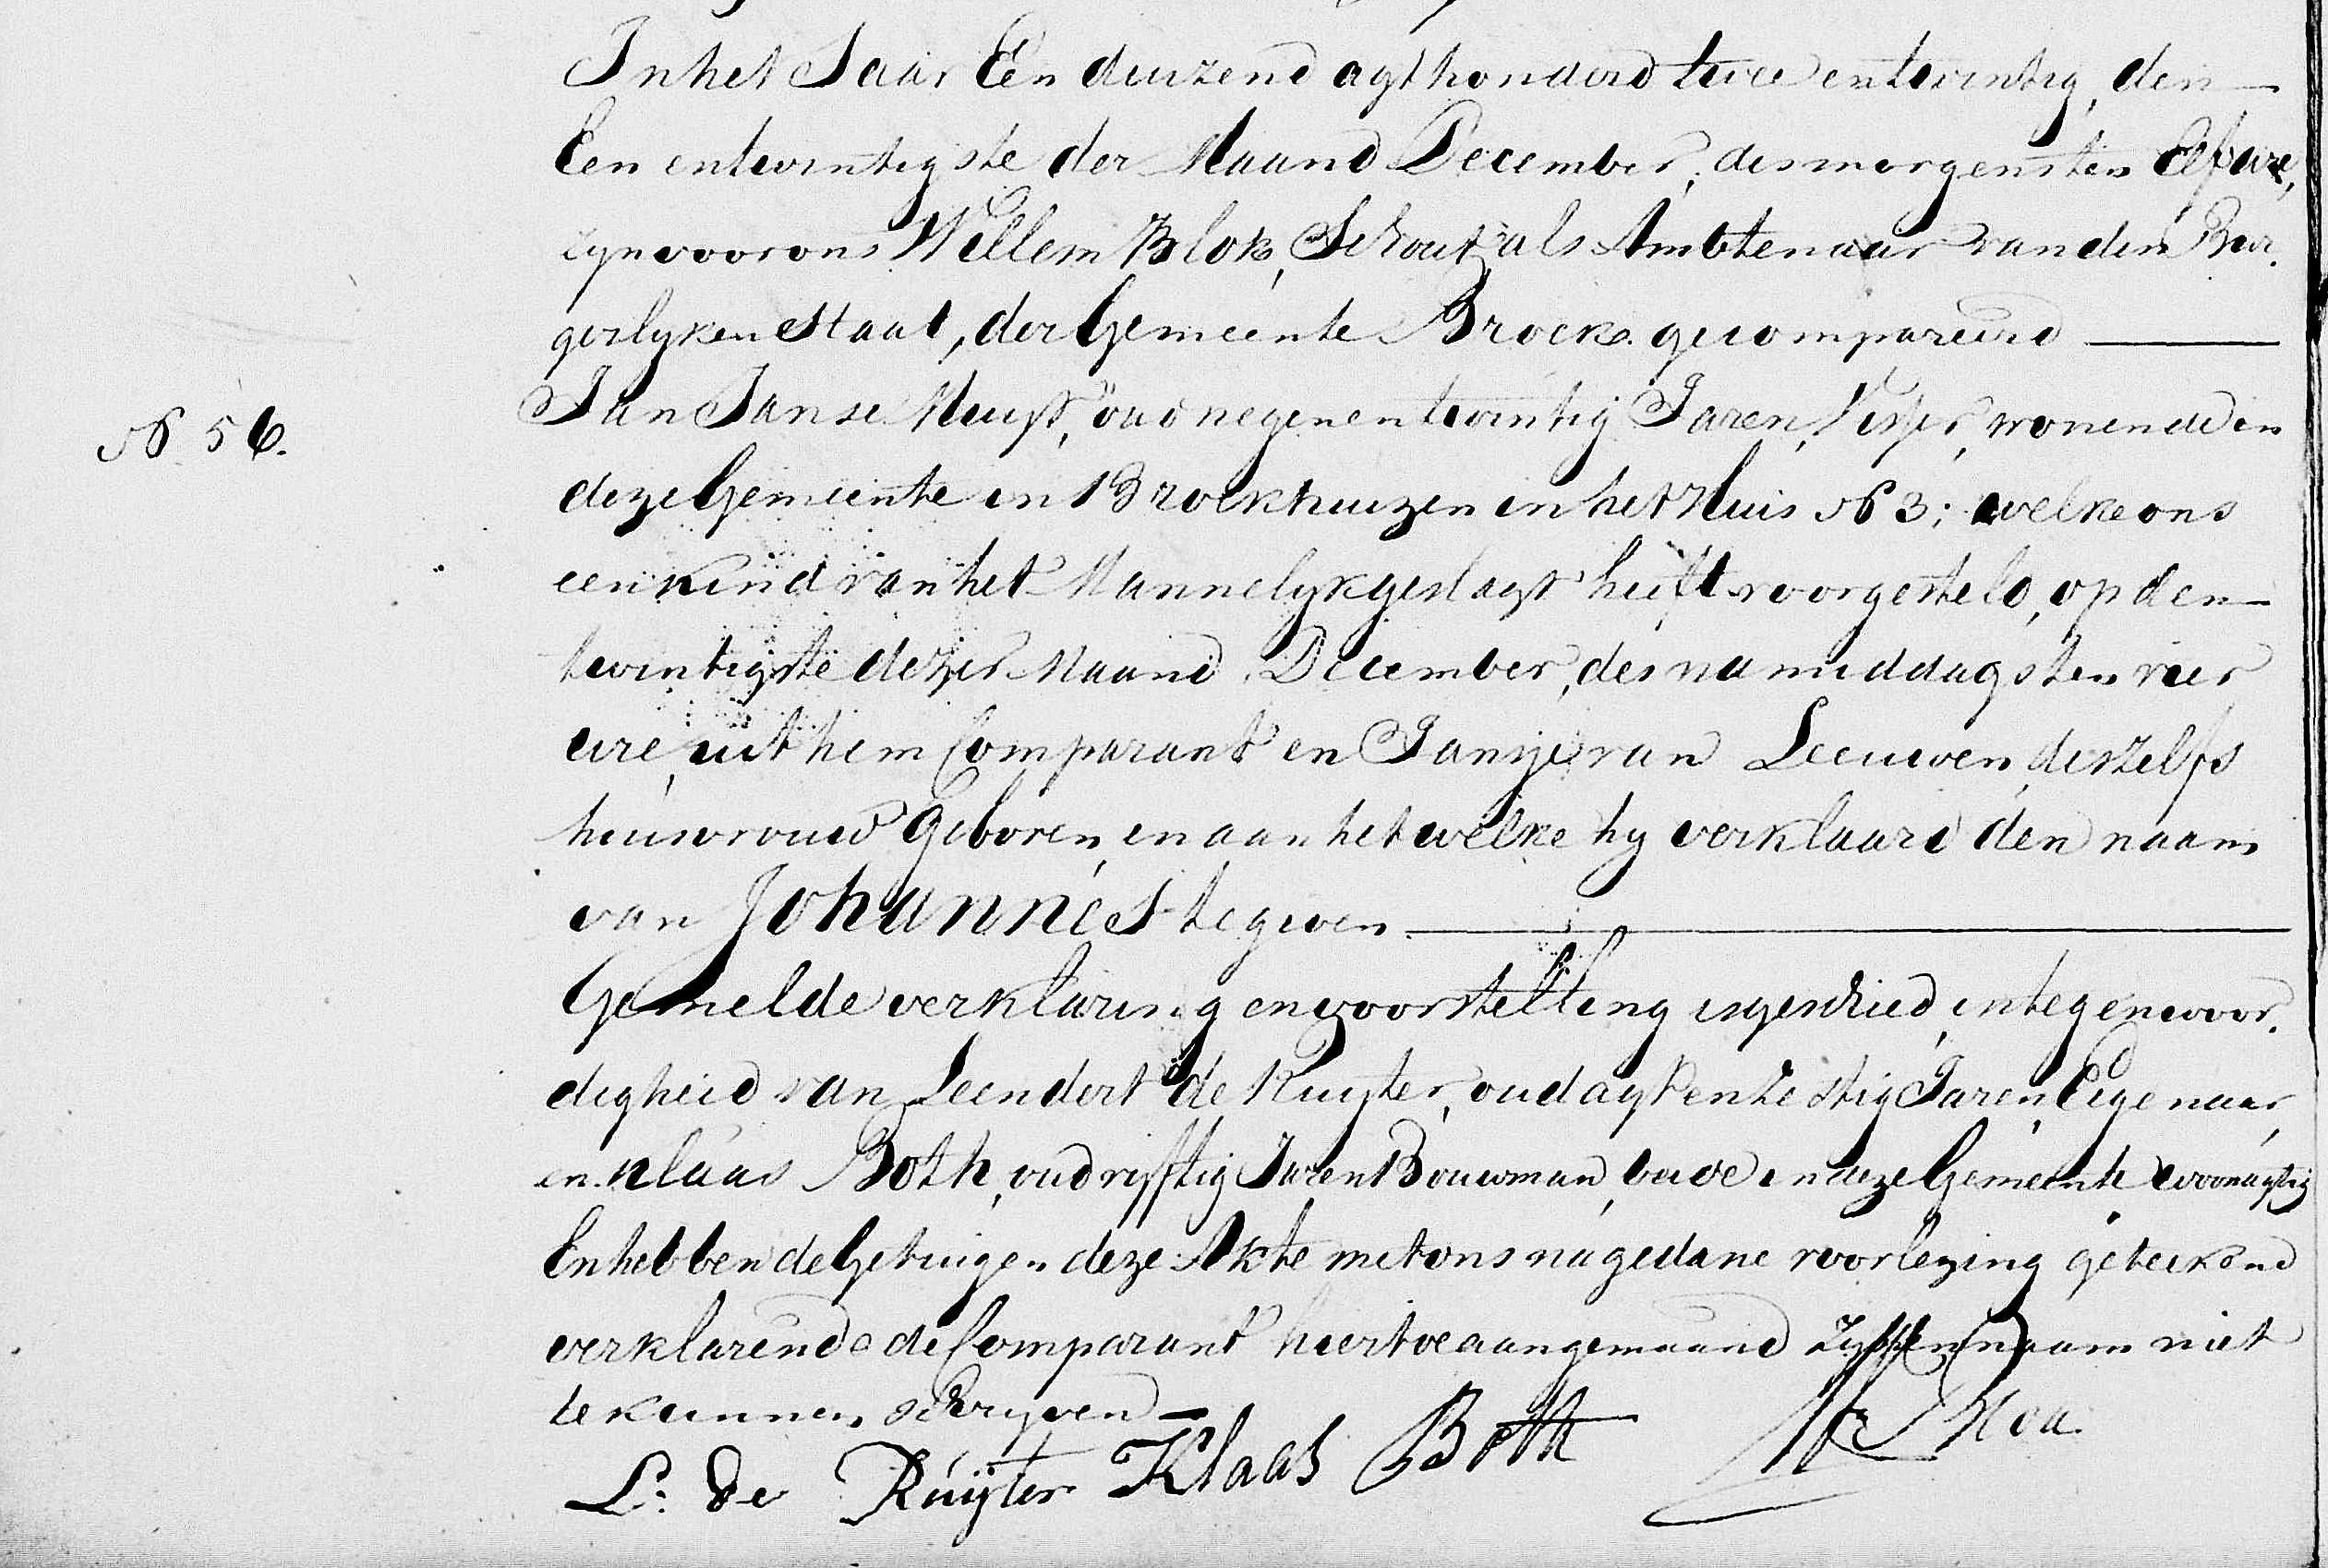 In het Jaar Een duizend agthonderd twee entwintig, den —
Een entwintigste der Maand December, des morgens ten Elf ure,
zyn voor ons Willem Blok, Schout als Ambtenaar van den Bur.
gerlyken Staat, der Gemeente Broek gecompareerd —
Jan Janse Kuyf, oud negenentwintig Jaren, Visser, wonende in
N° 56.
deze Gemeente in Broekhuizen in het Huis N° 3; welke ons
een kind van het Mannelyk geslagt heeft voorgesteld, op den —
twintigste dezer Maand December, des namiddags ten vier
ure, uit hem Comparant en Jansje van Leeuwen, deszelfs
huisvrouw Geboren, en aan het welke hy verklaard den naam
van Johannes te geven —
Gemelde verklaring en voorstelling is geschied, in tegenwoor.
digheid van Leendert de Ruyter, oud agt en zestig Jaren, Eigenaar,
en Klaas Both, oud vyftig Jaren Bouwman, beide in deze Gemeente woonagtig
En hebben de Getuigen deze Akte met ons na gedane voorlezing getekend
verklarende de Comparant hiertoe aangemaand zynen naam niet
te kunnen schryven —
L: de Ruijter Klaas Both